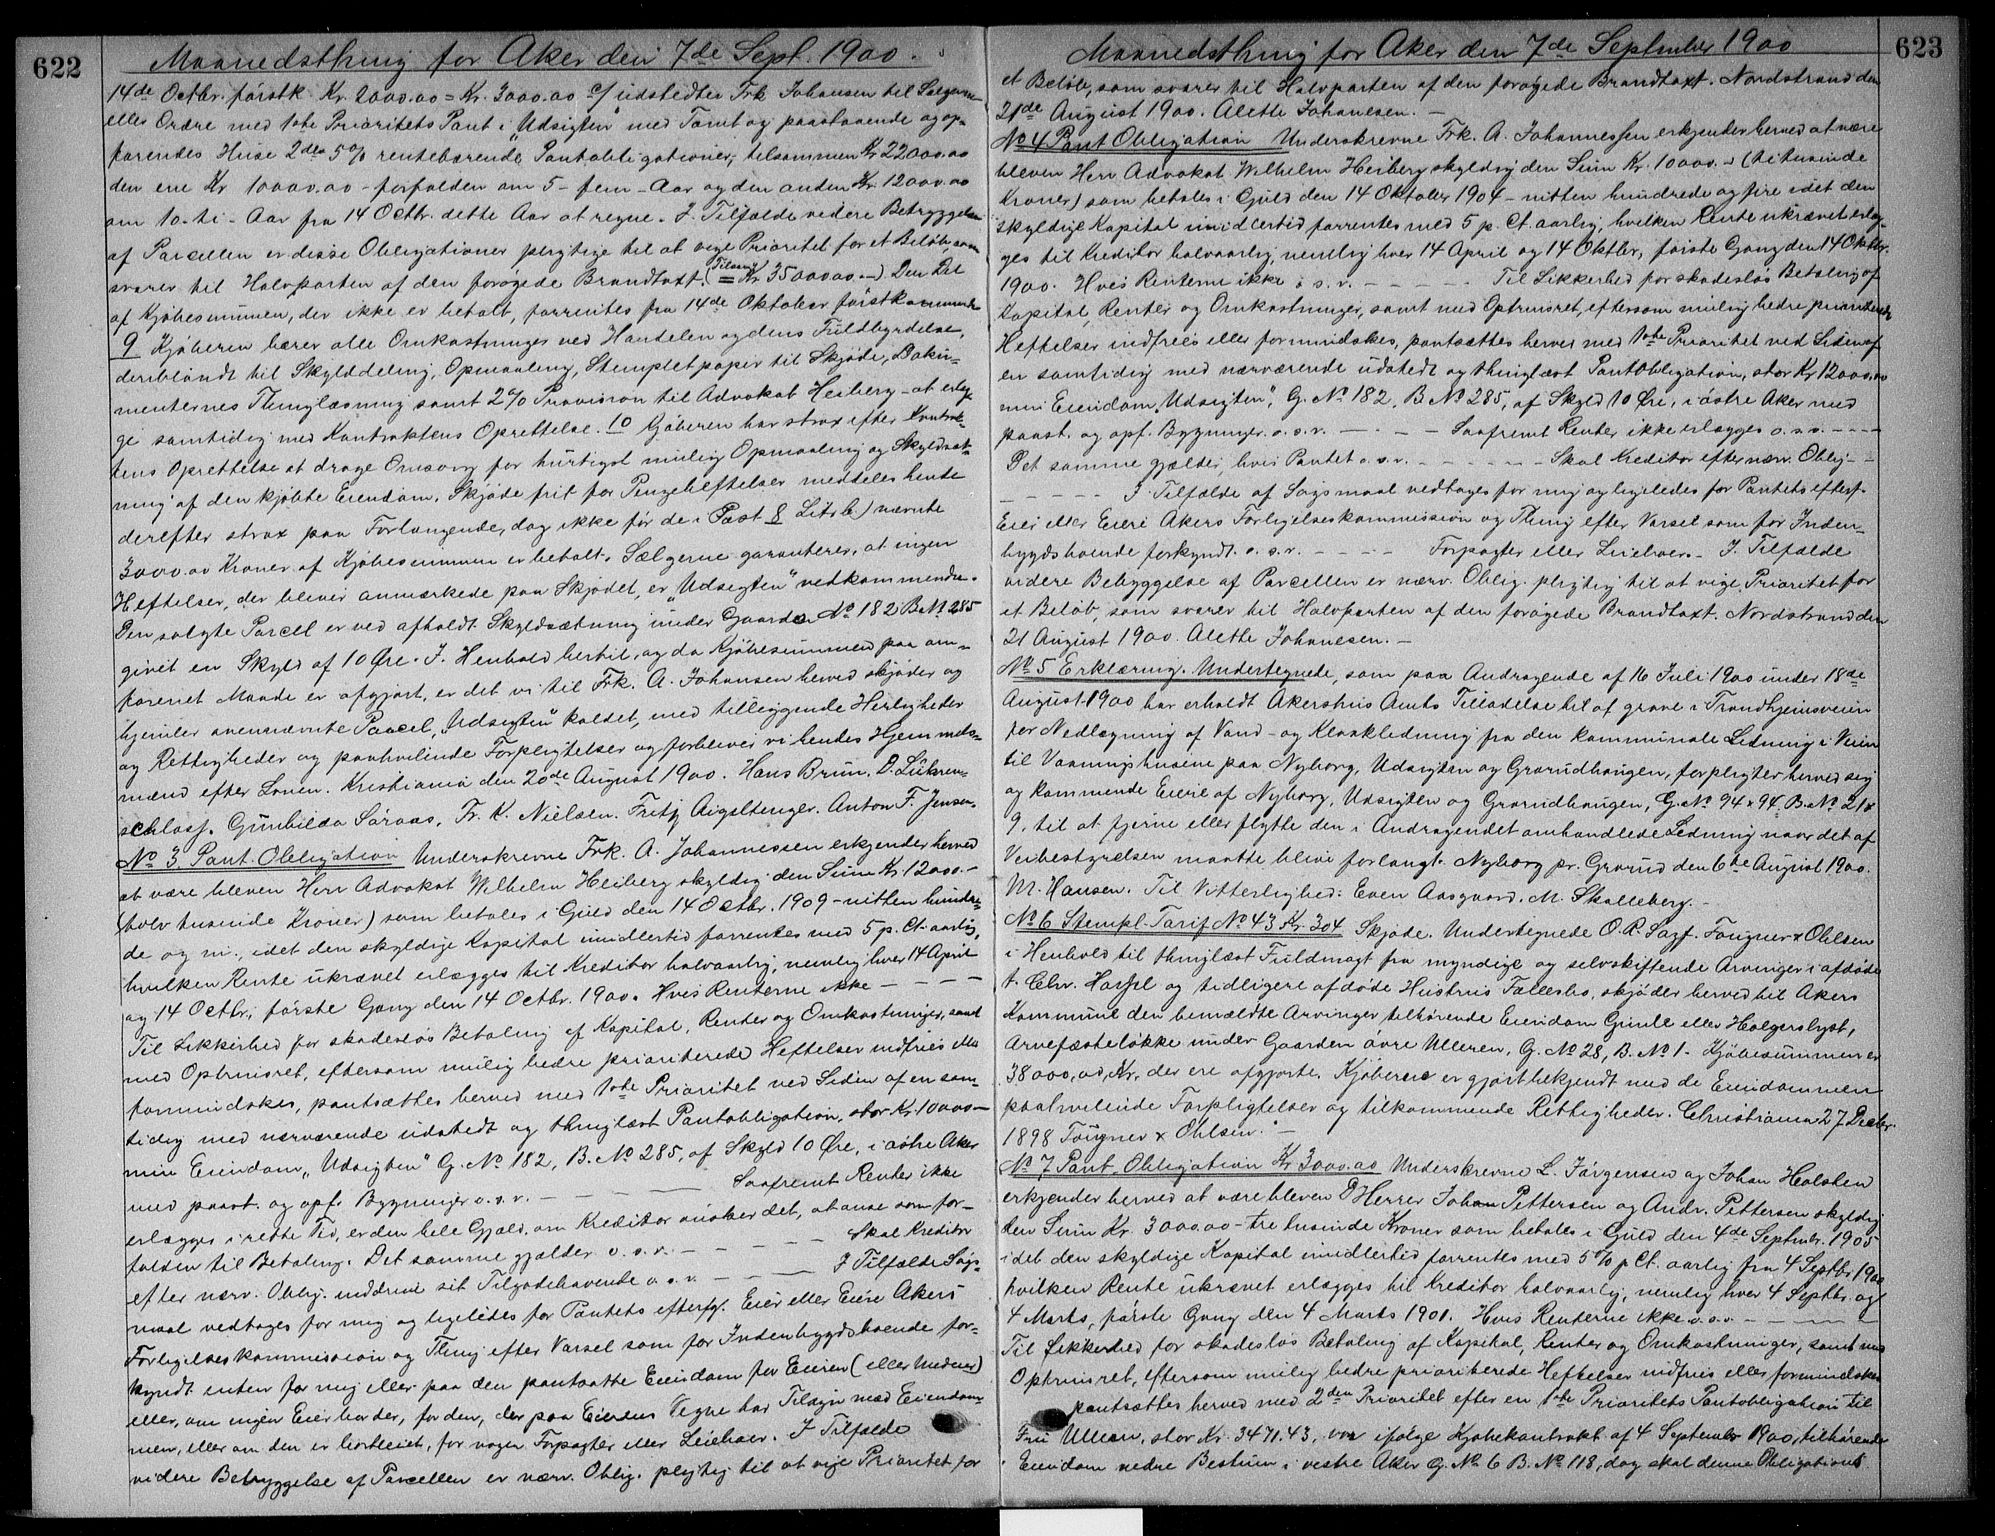 622
Maanedsthing for Aker den 7de Sept. 1900.
14de Octbr. førstk Kr. 2000.00 = Kr. 3000.00 c/ udstedter Frk Johansen til Sælgerne
eller Ordre med 1ste Prioritets Pant i „Udsigten" med Tomt og paastaaende og op-
førendes Huse 2de 5% rentebærende Pantobligationer, tilsammen Kr 22000.00
den ene Kr 10000.00 - forfalden om 5 - fem - Aar og den anden Kr. 12000.00
om 10 - ti - Aar fra 14 Octbr. dette Aar at regne. I Tilfælde videre Bebyggelse
af Parcellen er disse Obligationer pligtige til at vige Prioritet for et Beløb, som
svarer til Halvparten af den forøgede Brandtaxt. (Tilsam = Kr. 35000.00.-) Den Del
af Kjøbesummen, der ikke er betalt, forrentes fra 14de Oktober førstkommende
9 Kjøberen bærer alle Omkostninger ved Handelen og dens Fuldbyrdelse,
deriblandt til Skylddeling, Opmaaling, Stemplet papir til Skjøde, Doku-
menternes Thinglæsning samt 2% Provision til Advokat Heiberg - at erlæg-
ge samtidig med Kontraktens Oprettelse. 10 Kjøberen har strax efter Kontrak-
tens Oprettelse at drage Omsorg for hurtigst mulig Opmaaling og Skyldsæt-
ning af den kjøbte Eiendom. Skjøde frit for Pengeheftelser meddeles hende
derefter strax paa Forlangende, dog ikke før de i Post 8 Litr b) nævnte
3000.00 Kroner af Kjøbesummen er betalt. Sælgerne garanterer, at ingen
Heftelser, der bliver anmærkede paa Skjødet, er „Udsigten" vedkommende.
Den solgte Parcel er ved afholdt Skyldsætning under Gaards No 182 B.No 285
givet en Skyld af 10 Øre. I Henhold hertil, og da Kjøbesummen paa an-
førenet Maade er afgjort, er det vi til Frk. A. Johansen herved skjøder og
hjemler ovennævnte Parcel, „Udsigten" kaldet, med tilleggende Herligheder
og Rettigheder og paahvilende Forpligtelser og forbliver vi hendes Hjemmels-
mænd efter Loven. Kristiania den 20de August 1900. Hans Brun, D. Lühren-
schloss. Gunhilda Søraas, Fr. K. Nielsen. Fritz Aigeltenger. Anton F. Jensen.
No 3. Pant-Obligation Underskrevne Frk. A. Johannessen erkjender herved
at være bleven Herr Advokat Wilhelm Heiberg skyldig den Sum Kr. 12000.-
(tolv tusinde Kroner) som betales i Guld den 14 Octbr. 1909 - nitten hundre-
de og ni., idet den skyldige Kapital imidlertid forrentes med 5 p. Ct. aarlig,
hvilken Rente ukrævet erlægges til Kreditor halvaarlig, nemlig hver 14 April
og 14 Octbr., første Gang den 14 Octbr. 1900. Hvis Renterne ikke - - - -
Til Sikkerhed for skadesløs Betaling af Kapital, Renter og Omkostninger, samt
med Optrinsret, eftersom mulig bedre prioriterede Heftelser indfries eller
formindskes, pantsættes herved med 1ste Prioritet ved Siden af en sam-
tidig med nærværende udstedt og thinglæst Pantobligation, stor Kr. 10000.-
min Eiendom „Udsigten" G. No 182, B. No 285, af Skyld 10 Øre, i østre Aker
med paast. og opf. Bygninger o.s.v. - - - Saafremt Renter ikke
erlægges i rette Tid, er den hele Gjæld, om Kreditor ønsker det, at anse som for-
falden til Betaling. Det samme gjælder o.s.v. - - - Skal Kreditor
efter nærv. Oblig. inddrive sit Tilgodehavende o.s.v. - - - I Tilfælde Søgs-
maal vedtages for mig og ligeledes for Pantets efterfg. Eier eller Eiere Akers
Forligelseskommission og Thing efter Varsel som for Indenbygdsboende for-
kyndt enten for mig eller paa den pantsatte Eiendom for Eieren (eller Medeier)
eller, om ingen Eier bor der, for den, der paa Eierens Vegne har Tilsyn med Eiendom-
men, eller om den er bortleiet, for nogen Forpagter eller Leieboer. I Tilfælde
videre Bebyggelse af Parcellen er nærv. Oblig. pligtig til at vige Prioritet for
623
Maanedsthing for Aker den 7de September 1900
et Beløb, som svarer til Halvparten af den forøgede Brandtaxt. Nordstrand den
21de August 1900. Alethe Johanesen. -
No 4 Pant Obligation Underskrevne Frk. A. Johannessen erkjender herved at være
bleven Herr Advokat Wilhelm Heiberg skyldig den Sum Kr. 10000.- (ti tusinde
Kroner) som betales i Guld den 14 Oktober 1904 - nitten hundrede og fire idet den
skyldige Kapital imidlertid forrentes med 5 p. Ct. aarlig, hvilken Rente ukrævet erlæg-
ges til Kreditor halvaarlig, nemlig hver 14 April og 14 Oktbr., første Gang den 14 Oktbr.
1900. Hvis Renterne ikke o.s.v. - - - - - Til Sikkerhed for skadesløs Betaling af
Kapital, Renter og Omkostninger, samt med Optrinsret, eftersom mulig bedre prioriterede
Heftelser indfries eller formindskes, pantsættes herved med 1ste Prioritet ved Siden af
en samtidig med nærværende udstedt og thinglæst Pantobligation, stor Kr 12000.00
min Eiendom „Udsigten", G. No 182, B No 285, af Skyld 10 Øre, i østre Aker med
paast. og opf. Bygninger o.s.v. - - - - Saafremt Renter ikke erlægges o.s.v. - - - -
Det samme gjælder, hvis Pantet o.s.v. - - - - - - Skal Kreditor efter nærv. Oblig - -
- - - - - I Tilfælde af Søgsmaal vedtages for mig og ligeledes for Pantets efterf.
Eier eller Eiere Akers Forligelseskommission og Thing efter Varsel som for Inden-
bygdsboende forkyndt o.s.v. - - - - Forpagter eller Leieboer. - I Tilfælde
videre Bebyggelse af Parcellen er nærv. Oblig. pligtig til at vige Prioritet for
et Beløb, som svarer til Halvparten af den forøgede Brandtaxt. Nordstrand den
21 August 1900. Alethe Johanesen. -
No 5 Erklæring. Undertegnede, som paa Andragende af 16 Juli 1900 under 18de
August 1900 har erholdt Akershus Amts Tilladelse til at grave i Trondhjemsveien
for Nedlægning af Vand - og Kloakledning fra den kommunale Ledning i Veien
til Vaaningshusene paa Nyborg, Udsigten og Grorudhaugen, forpligter herved sig
og kommende Eiere af Nyborg, Udsigten og Grorudhaugen, G. No 94 x 94 B. No 21 x
9, til at fjerne eller flytte den i Andragendet omhandlede Ledning naar det af
Veibestyrelsen maatte blive forlangt. Nyborg pr. Grorud den 6te August 1900.
M. Hansen. Til Vitterlighed: Even Aasgaard. M. Skolleberg. -
No 6 Stempl. Tarif No 43 Kr. 304 Skjøde. Undertegnede O.R. Sagf. Fougner & Ohlsen
i Henhold til thinglæst Fuldmagt fra myndige og selvskiftende Arvinger i afdøde
t. Chr. Hassel og tidligere afdøde Hustrus Fællesbo, skjøder herved til Akers
Kommune den bemeldte Arvinger tilhørende Eiendom Gimle eller Holgerslyst,
Arvefæsteløkke under Gaarden øvre Ulleren, G. No 28, B. No 1. Kjøbesummen er
38000,00 Kr, der ere afgjorte. Kjøberne er gjort bekjendt med de Eiendommen
paahvilende Forpligtelser og tilkommende Rettigheder. Christiania 27 Decbr.
1898 Fougner & Ohlsen. -
No 7 Pant-Obligation Kr 3000.00 Underskrevne L. Jørgensen og Johan Holsten
erkjender herved at være bleven D'Herrer Johan Pettersen og Andr. Pettersen skyldig
den Sum Kr. 3000.00 - tre tusinde Kroner som betales i Guld den 4de Septmbr. 1905
idet den skyldige Kapital imidlertid forrentes med 5% p Ct. aarlig fra 4 Septbr 1900
hvilken Rente ukrævet erlægges til Kreditor halvaarlig, nemlig hver 4 Septbr. og
4 Marts, første Gang den 4 Marts 1901. Hvis Renterne ikke o.s.v. - - - -
Til Sikkerhed for skadesløs Betaling af Kapital, Renter og Omkostninger, samt med
Optrinsret, eftersom mulig bedre prioriterede Heftelser indfries eller formindskes
pantsættes herved med 2den Prioritet efter en 1ste Prioritets Pantobligation til
Fru Ulleren, stor Kr. 3471.43, vor ifølge Kjøbekontrakt af 4 September 1900, tilhørende
Eiendom nedre Bestum i vestre Aker G. No 6 B. No 118, dog skal denne Obligation